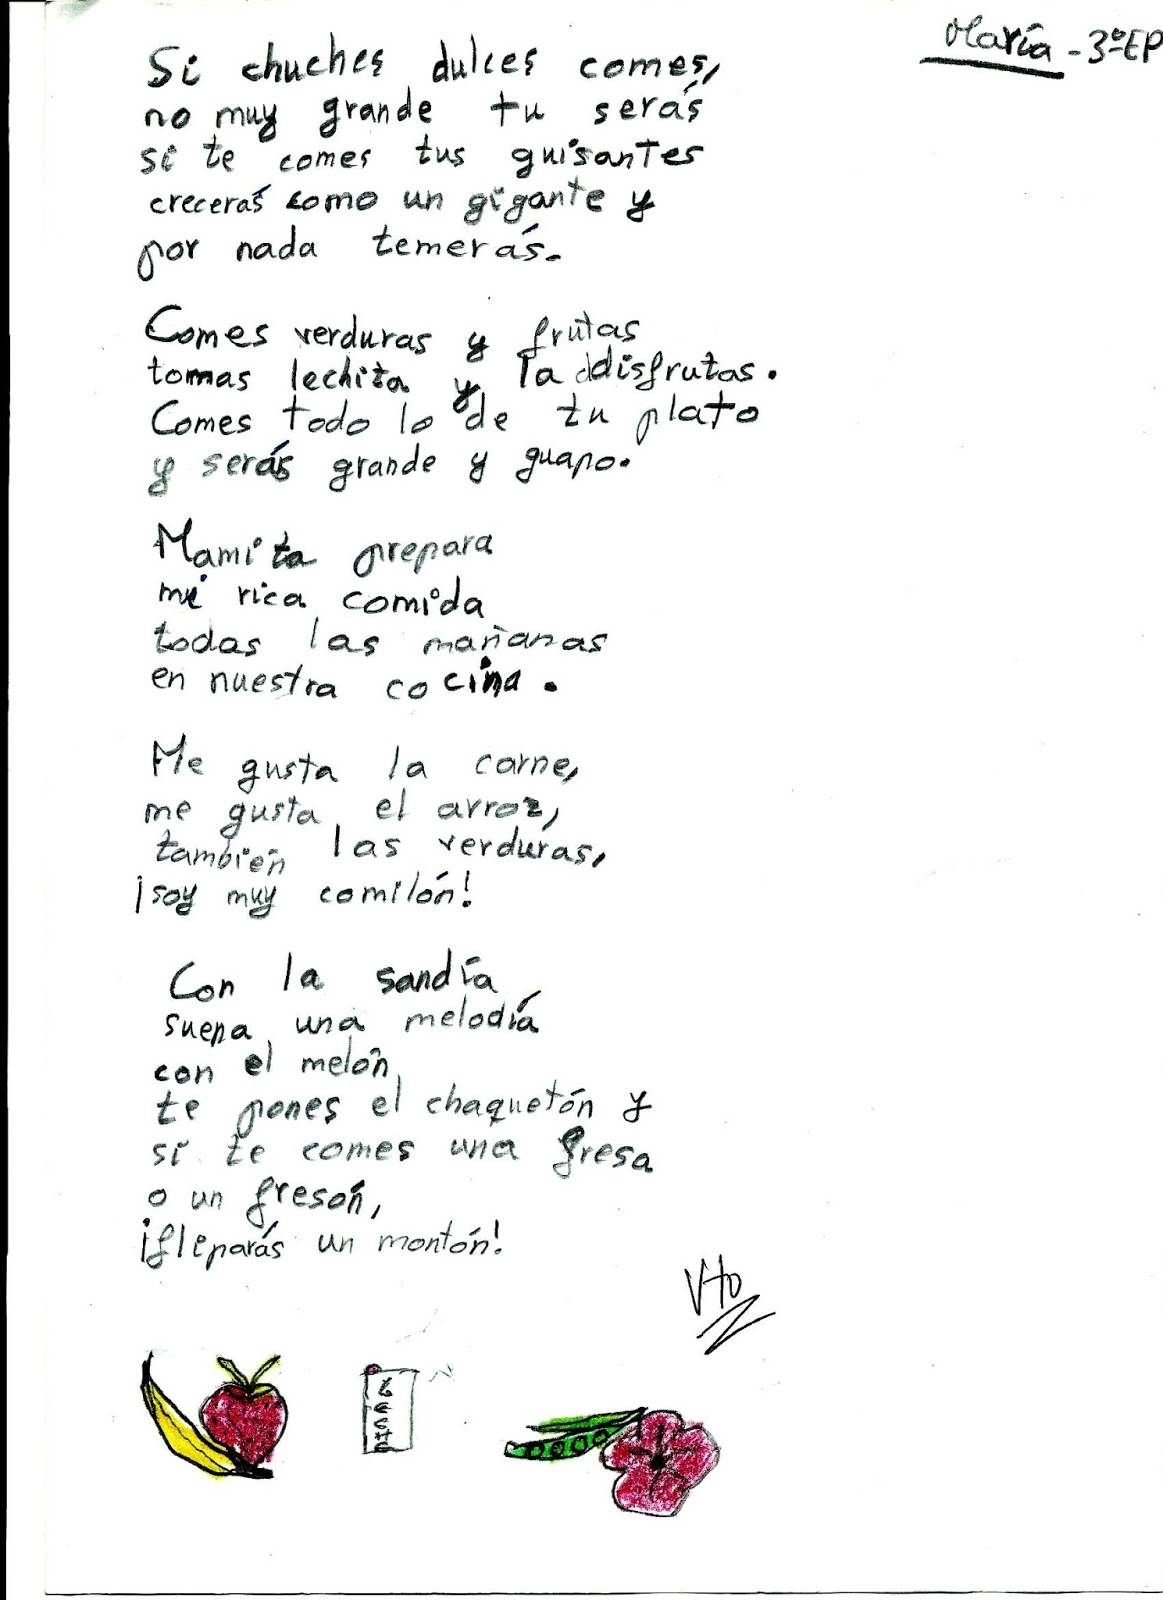 María - 3ºEP
Si chuches dulces comes,
no muy grande tu serás
si te comes tus guisantes
crecerás como un gigante y
por nada temerás.
Comes verduras y frutas
tomas lechita y la ddisfrutas.
Comes todo lo de tu plato
y serás grande y guapo.
Mamita prepara
mi rica comida
todas las mañanas
en nuestra cocina.
Me gusta la carne,
me gusta el arroz,
también las verduras,
¡soy muy comilón!
Con la sandía
suena una melodía
con el melón
te pones el chaquetón y
si te comes una fresa
o un fresón,
¡fleparás un montón!
Vto
LECHE